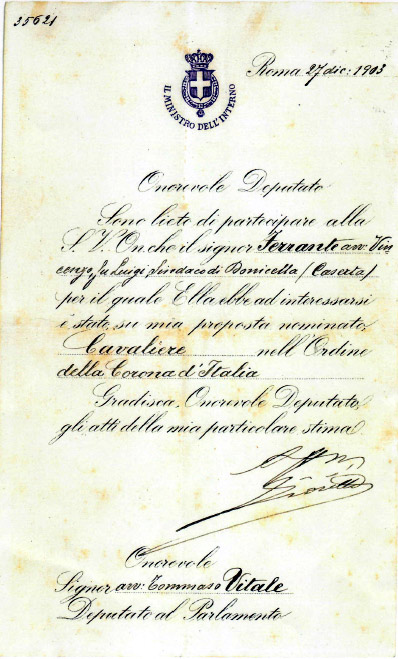 35621
Roma 27 dic: 1903
IL MINISTRO DELL'INTERNO
Onorevole Deputato
Sono lieto di partecipare alla
S. V. On. che il signor Ferrante avv. Vin
cenzo fu Luigi Sindaco di Bonicella (Caserta)
per il quale Ella ebbe ad interessarsi
è stato, su mia proposta nominato,
Cavaliere nell'Ordine
della Corona d'Italia
Gradisca, Onorevole Deputato,
gli atti della mia particolare stima
Onorevole
Signor avv. Tommaso Vitale
Deputato al Parlamento